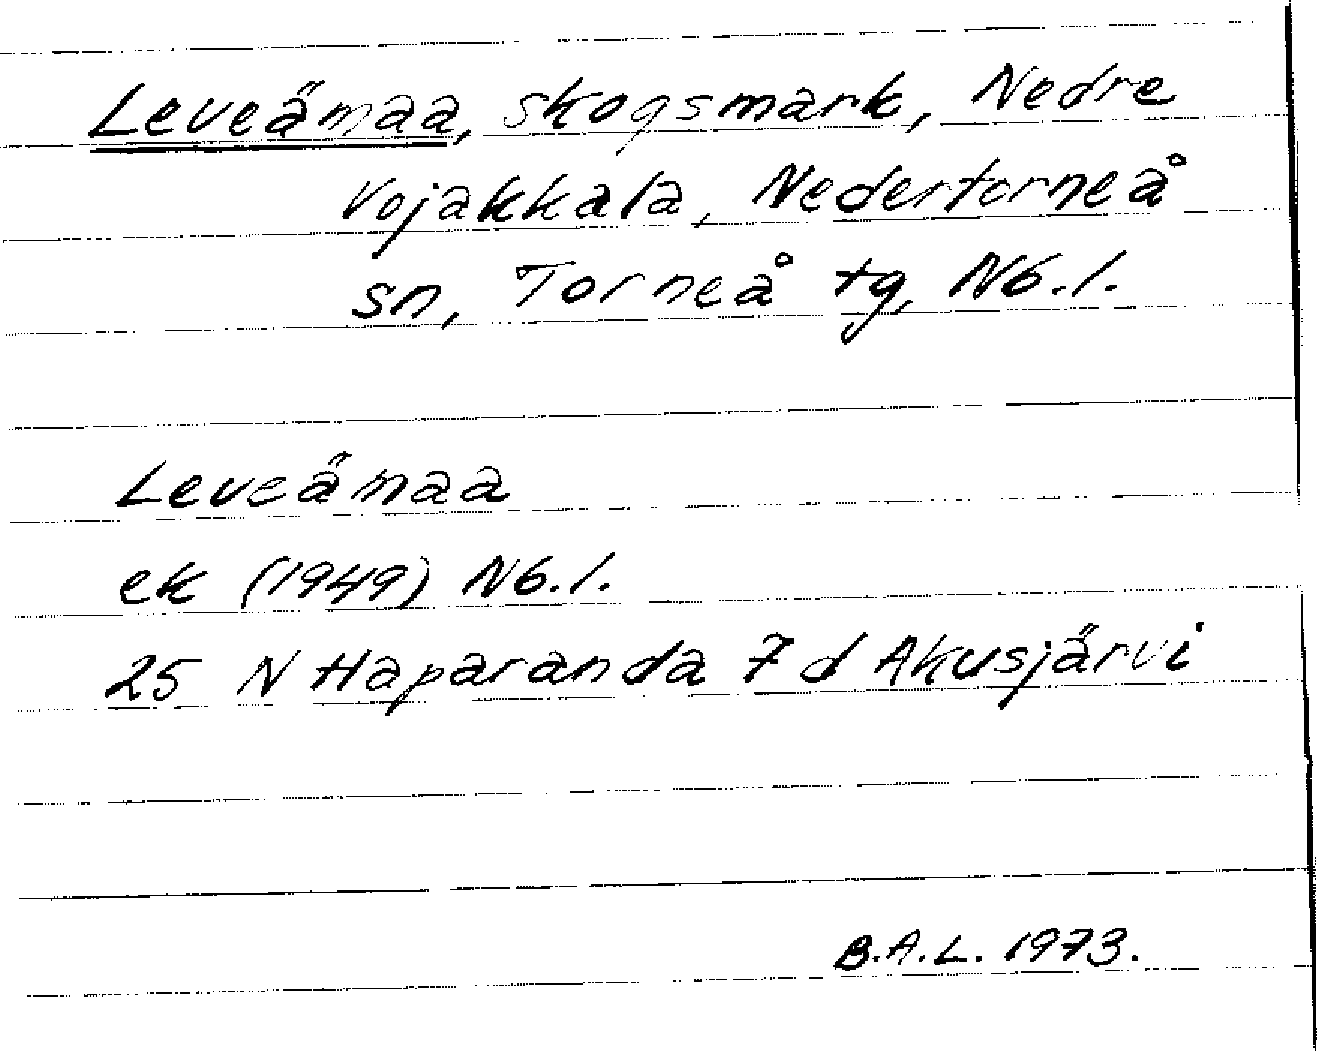 Leveämaa, skogsmark, Nedre
Vojakkala, Nedertorneå
sn, Torneå tg, Nb.l.
Leveämaa
ek (1949) Nb.l.
25 N Haparanda 7 d Akusjärvi
B.A.L. 1973.